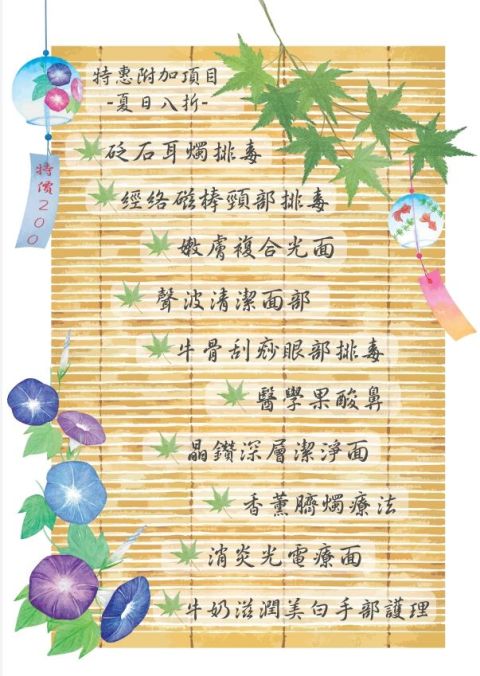 特惠附加項目
-夏日八折-
特價200
砭石耳燭排毒
經絡磁棒頸部排毒
嫩膚複合光面
聲波清潔面部
牛骨刮痧眼部排毒
醫學果酸鼻
晶鑽深層潔淨面
香薰臍燭療法
消炎光電療面
牛奶滋潤美白手部護理